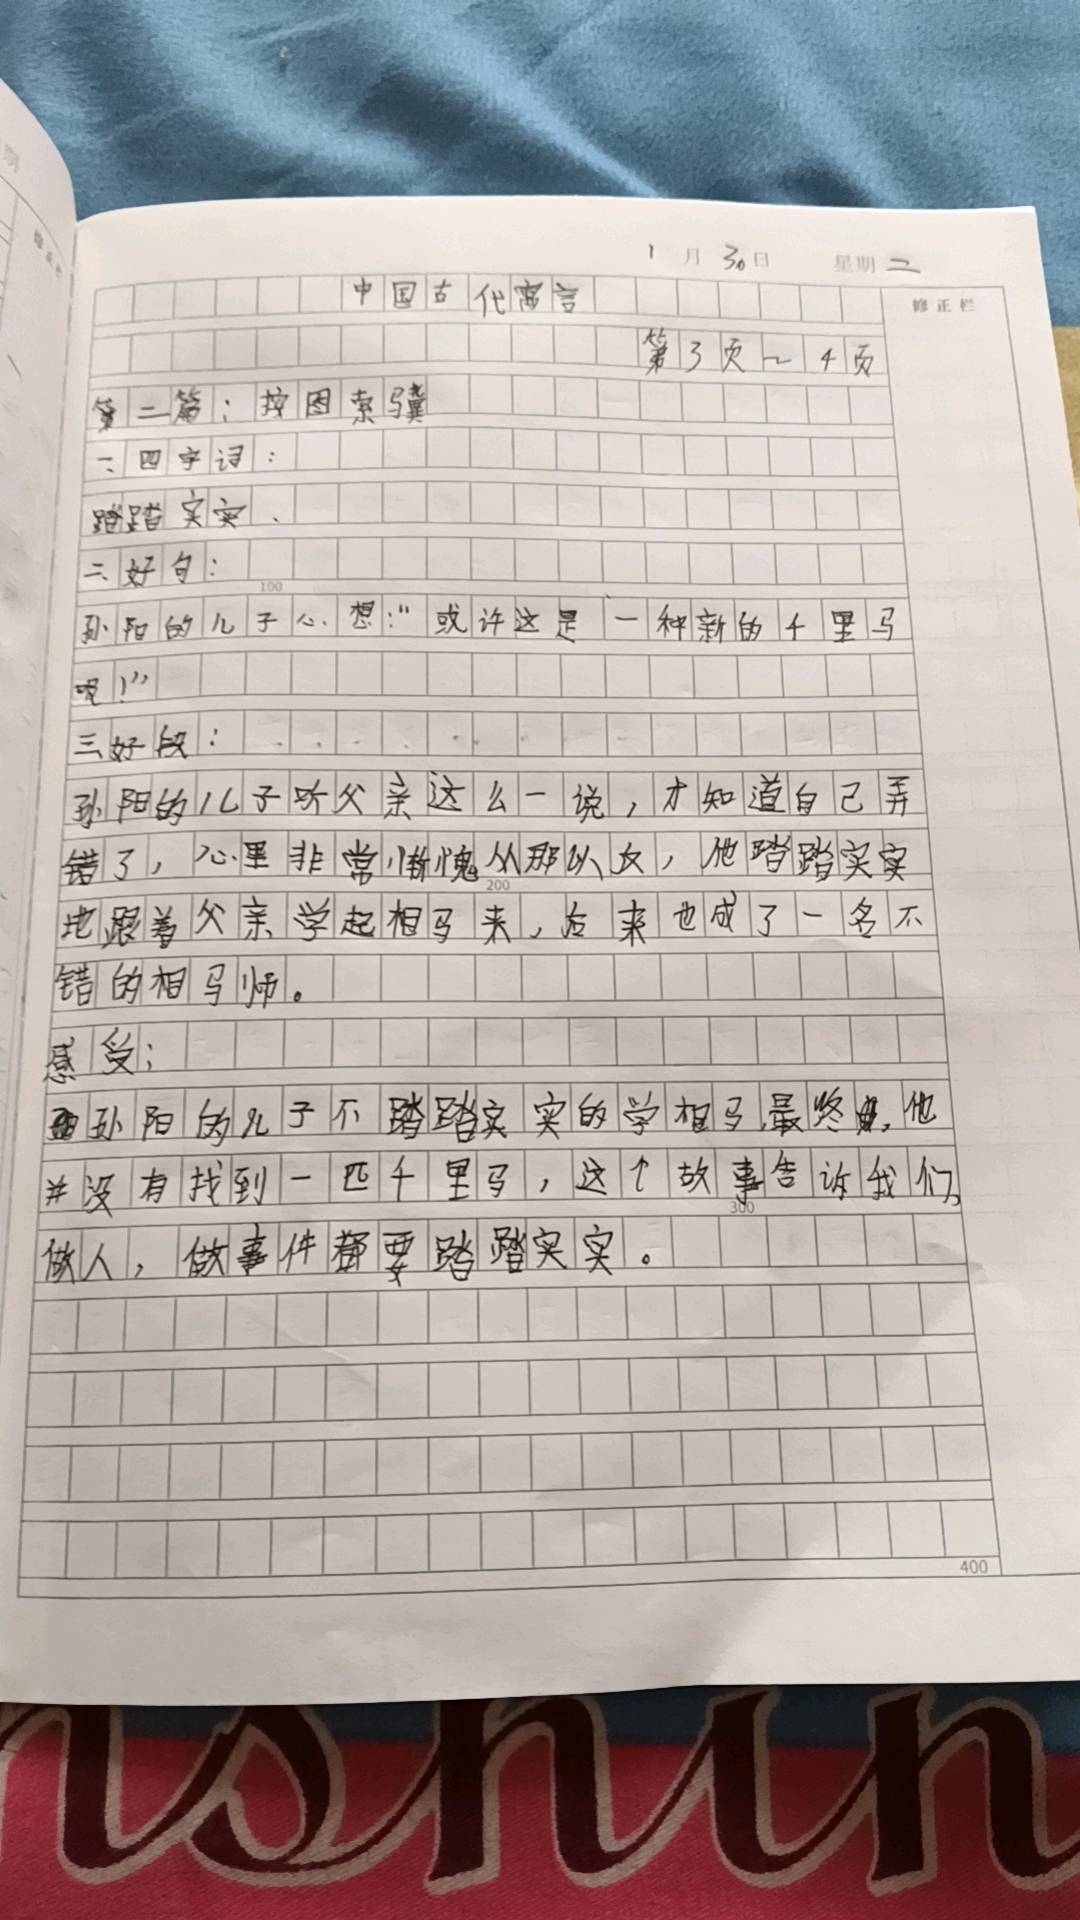 1月30日 星期二
修正栏
中国古代寓言
第3页~4页
第二篇：按图索骥
一、四字词：
踏踏实实、
二、好句：
100
孙阳的儿子心想："或许这是一种新的千里马
呢！"
三、好段：
孙阳的儿子听父亲这么一说，才知道自己弄
错了，心里非常惭愧从那以后，他踏踏实实
200
地跟着父亲学起相马来，后来也成了一名不
错的相马师。
感受：
孙阳的儿子不踏踏实实的学相马，最终，他
没有找到一匹千里马，这个故事告诉我们，
300
做人，做事件都要踏踏实实。
400
nshin